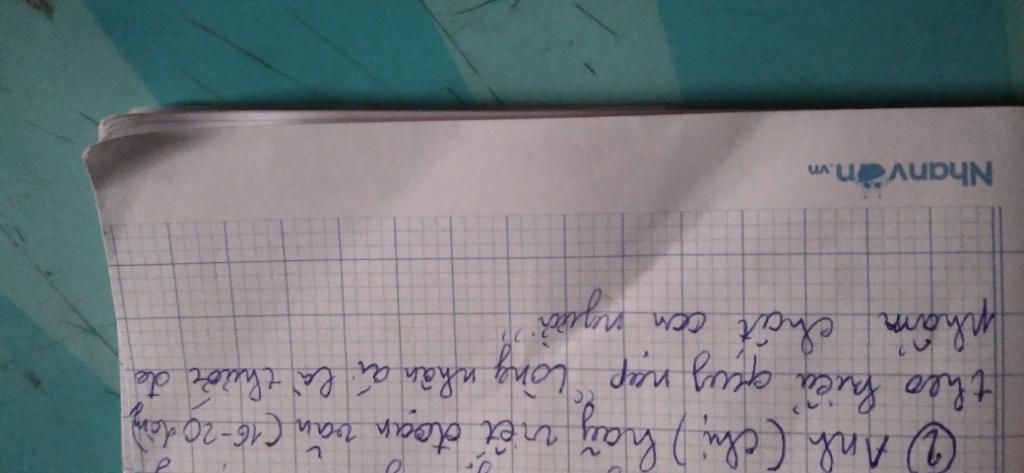 ② Anh (chị) hãy viết đoạn văn (16-20 dòng)
theo kiểu quy nạp "Lòng nhân ái là thước đo
phẩm chất con người"
Nhanvăn.vn